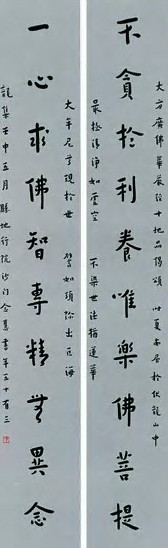 大方廣佛華嚴經十地品偈頌 時夏居於伏龍山中
不貪於利養唯樂佛菩提
最極清淨如虛空 不染世法猶蓮華
大牟尼尊現於世 譬如須彌出巨海
一心求佛智專精無異念
龍集壬申五月 地行院沙門 書年五十有三